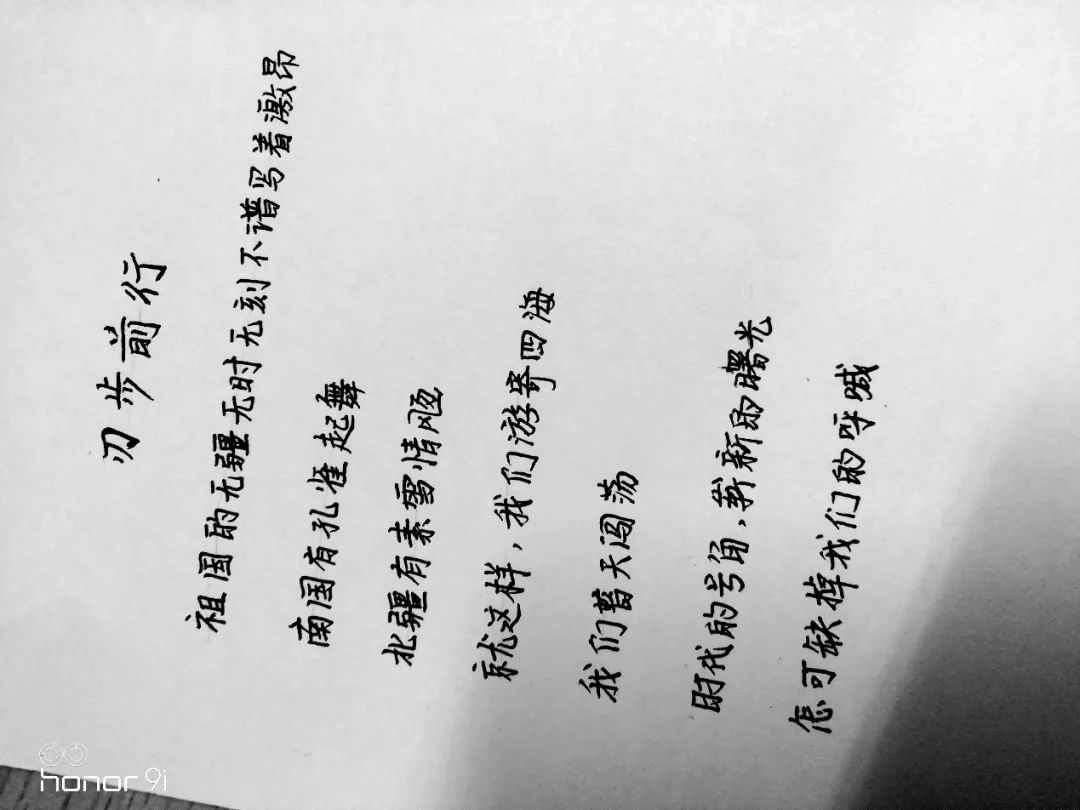 刃步前行
祖国的无疆无时无刻不谱写着激昂
南国有孔雀起舞
北疆有素雪情
就这样,我们游寄四海
我们普天闯荡
时代的号角,新的曙光
怎可缺掉我们的呼喊
honor 9i